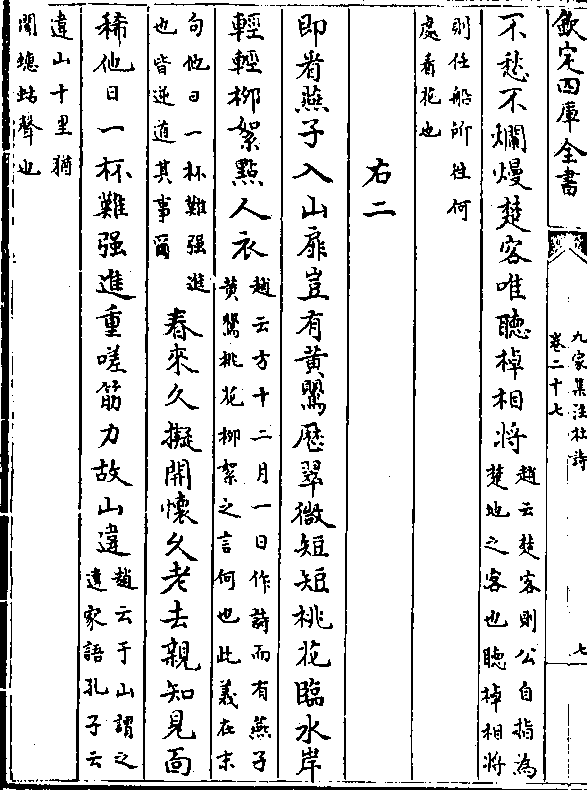 欽定四庫全書
九家集注杜詩
卷二十七
七
不愁不爛熳楚客唯聽棹相將
趙云楚客則公自指為
楚地之客也聽棹相將
則任船所往何
處看花也
右二
即看燕子入山扉豈有黃鸎歷翠微短短桃花臨水岸
輕輕柳絮點人衣
趙云方十二月一日作詩而有燕子
黃鸎桃花柳絮之言何也此義在末
句他日一杯難强進
也皆逆道其事爾
春來久擬開懷久老去親知見面
稀他日一杯難强進重嗟筋力故山違
趙云于山謂之
違家語孔子云
違山十里猶
聞蟪蛄聲也